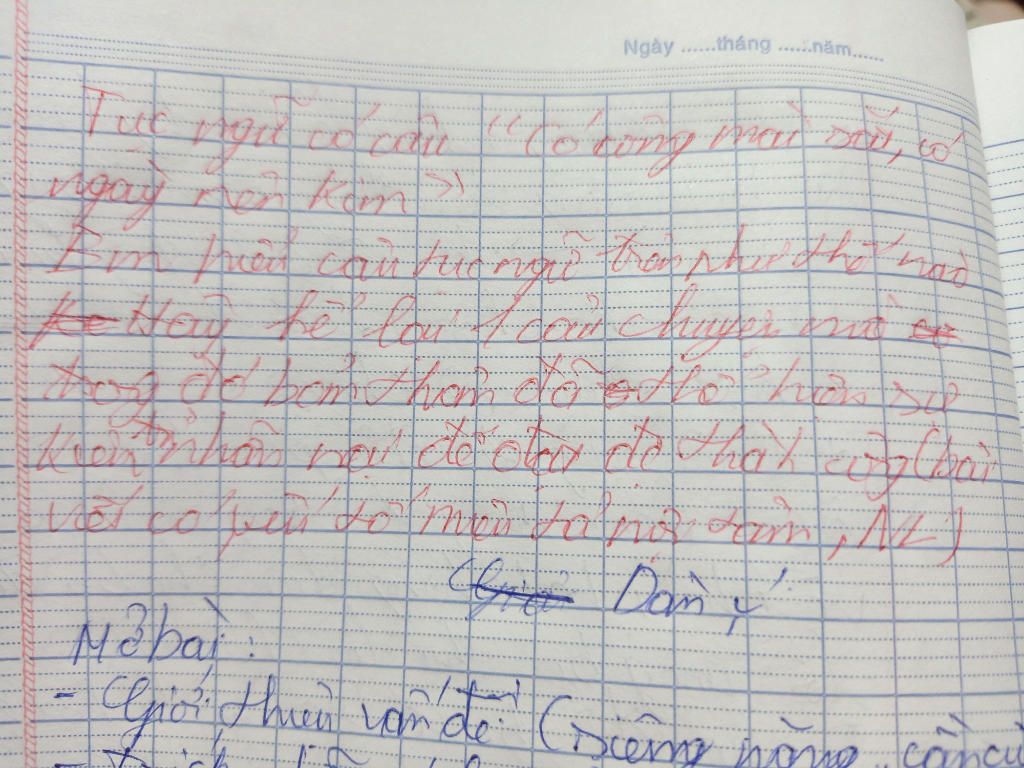 Ngày ......tháng ......năm......
Tục ngữ có câu "Có công mài sắt, có
ngày nên kim"
Em hiểu câu tục ngữ trên như thế nào
Hãy kể lại 1 câu chuyện mà
trong đó bản thân đã thể hiện sự
kiên nhẫn nại để đạt đc thành công (bài
viết có yếu tố miêu tả nội tâm, NL)
Dàn ý
Mở bài:
- Giới thiệu vấn đề (siêng năng, cần cù